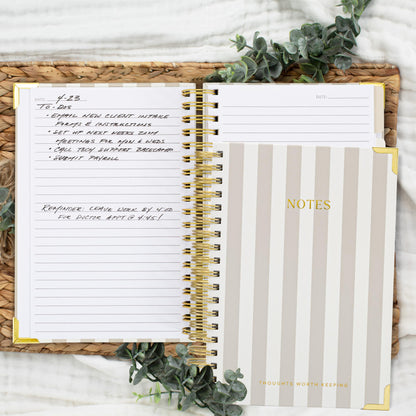 DATE 4-23
TO-DOS
• EMAIL NEW CLIENT INTAKE
FORMS & INSTRUCTIONS
• SET UP NEXT WEEKS ZOOM
MEETINGS FOR MON & WEDS
• CALL TECH SUPPORT BASECAMP
• SUBMIT PAYROLL
REMINDER: LEAVE WORK BY 4:00
FOR DOCTOR APPT @ 4:45!
DATE
NOTES
THOUGHTS WORTH KEEPING